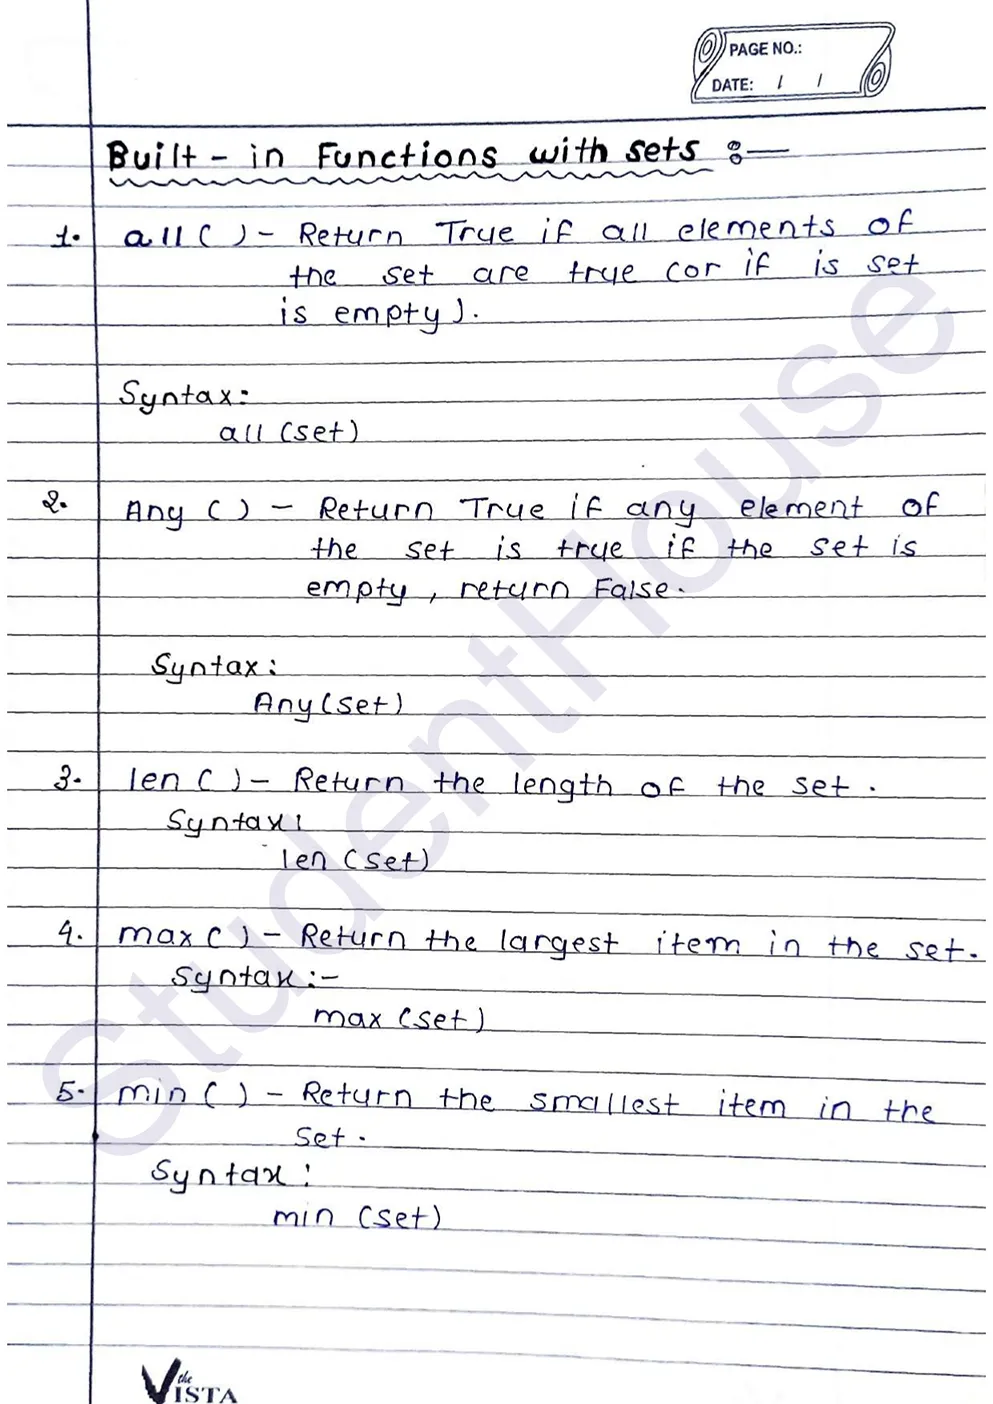 PAGE NO.:
DATE: / /
Built - in Functions with sets :—
1. all ( ) - Return True if all elements of
the set are true (or if is set
is empty).
Syntax:
all (set)
2. Any ( ) - Return True if any element of
the set is true if the set is
empty, return False.
Syntax:
Any (set)
3. len ( ) - Return the length of the set.
Syntax:
len (set)
4. max ( ) - Return the largest item in the set.
Syntax:-
max (set)
5. min ( ) - Return the smallest item in the
set.
Syntax:
min (set)
StudentHouse
the
VISTA